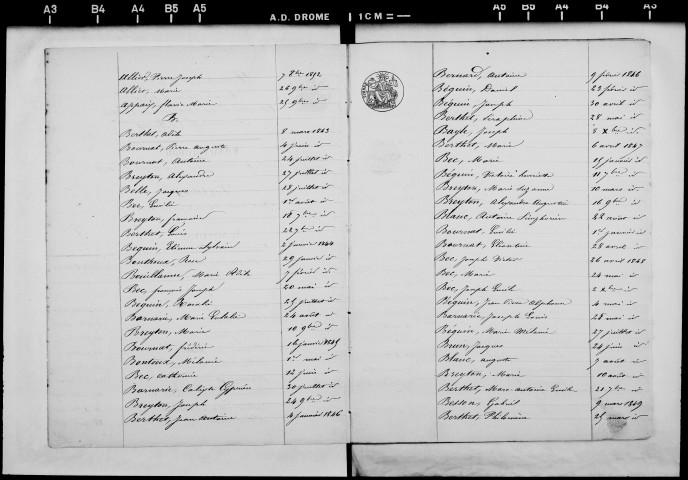 A3 B4 A4 B5 A5 A.D. DROME 1 CM A5 B5 A4 B4 A3
Allier, Pierre Joseph 7 8bre 1872
Allier, Marie 26 9bre id
Appaix, Flavie Marie 25 9bre id
B.
Berthet, 8 mars 1863
Bournat, Pierre auguste 4 juin id
Bournat, Antoine 24 juillet id
Breyton, Alexandre 27 juillet id
Belle, Jacques 28 juillet id
Bec, Emilie 1er août id
Breyton, françoise 18 7bre id
Berthet, Louis 22 7bre id
Béguin, Etienne Sylvain 2 janvier 1864
29 janvier id
Bouillanne, Marie 7 février id
Bec, françois Joseph 20 mai id
Béguin, Rosalie 25 juillet id
Barnarie, Marie Eulalie 24 août id
Breyton, Marie 10 9bre id
Bournat, frédéric 16 janvier 1865
Bontoux, Mélanie 1er mai id
Bec, Catherine 12 juin id
Barnarie, Calixte Cyprien 30 juillet id
Breyton, Joseph 24 9bre id
Berthet, Jean Antoine 4 janvier 1866
Bernard, Antoine 9 février 1866
Béguin, Daniel 23 février id
Béguin, Joseph 30 avril id
Berthet, Séraphine 28 mai id
Bayle, Joseph 8 Xbre id
Berthet, Marie 6 avril 1867
Bec, Marie 15 janvier id
Béguin, Victoire henriette 11 7bre id
Breyton, Marie Suzanne 10 mars id
Breyton, Alexandre Augustin 16 9bre id
Blanc, Antoine 22 août id
Bournat, Emilie 1er janvier id
Bournat, 28 avril id
Bec, Joseph Victor 26 avril 1868
Bec, Marie 24 mai id
Bec, Joseph Emile 2 Xbre id
Béguin, Jean Pierre Alphonse 4 mai id
Barnarie, Joseph Louis 28 mai id
Béguin, Marie Mélanie 27 juillet id
Brun, Jacques 24 juin id
Blanc, auguste 7 août id
Breyton, Marie 10 août id
Berthet, Marc Antoine Emile 21 7bre id
Besson, Gabriel 9 mars 1869
Berthet, Philomène 25 mars id